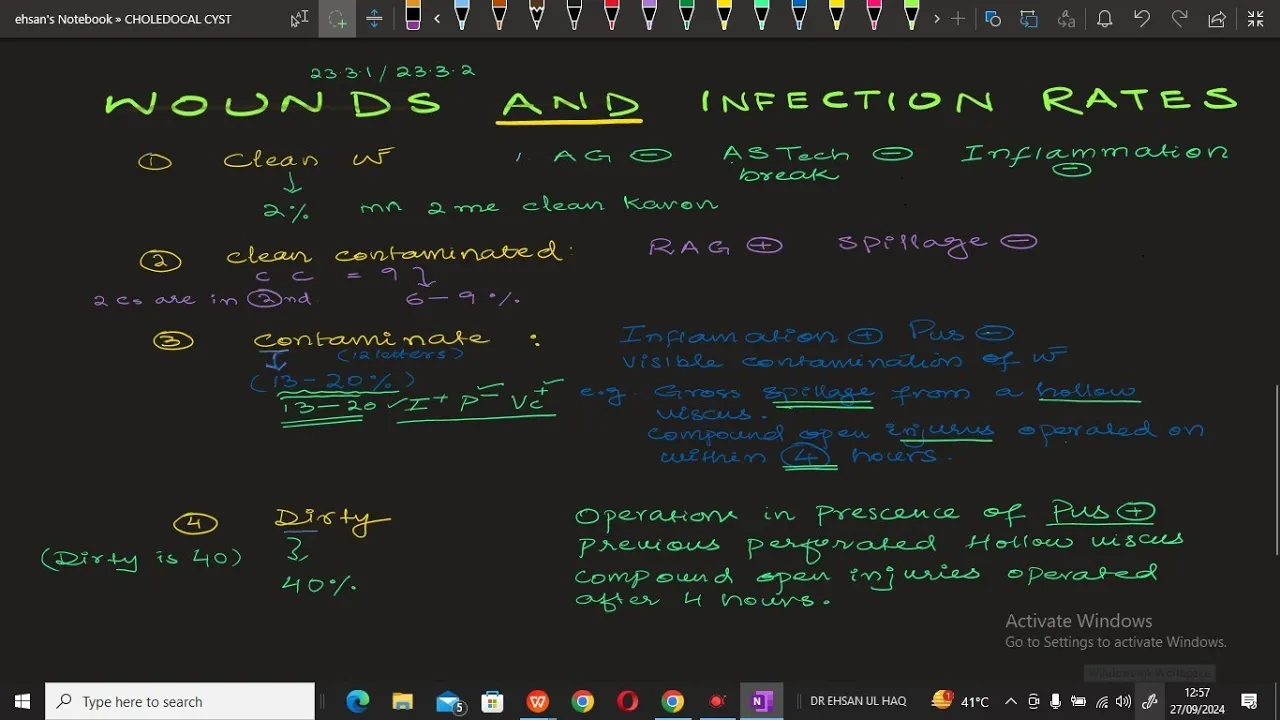 ehsan's Notebook » CHOLEDOCAL CYST
23.3.1 / 23.3.2
WOUNDS AND INFECTION RATES
① Clean w
AG ⊖ ASTech ⊖ Inflammation
break ⊖
2% mn 2 me clean karon
② clean contaminated:
RAG ⊕ spillage ⊖
C C = 9
2 Cs are in ② nd. 6-9%
③ contaminate :
Inflamation ⊕ Pus ⊖
(12 letters)
visible contamination of w
(13-20%)
e.g. Gross spillage from a hollow
13-20 ✓ I⁺ P⁻ Vc⁺
viscus.
compound open injurus operated on
within ④ hours.
④ Dirty
Operations in prescence of Pus ⊕
(Dirty is 40)
previous perforated Hollow viscus
40%
compound open injuries operated
after 4 hours.
Activate Windows
Go to Settings to activate Windows.
Windows Ink Workspace
Type here to search
5
DR EHSAN UL HAQ
1
41°C
12:57
27/09/2024